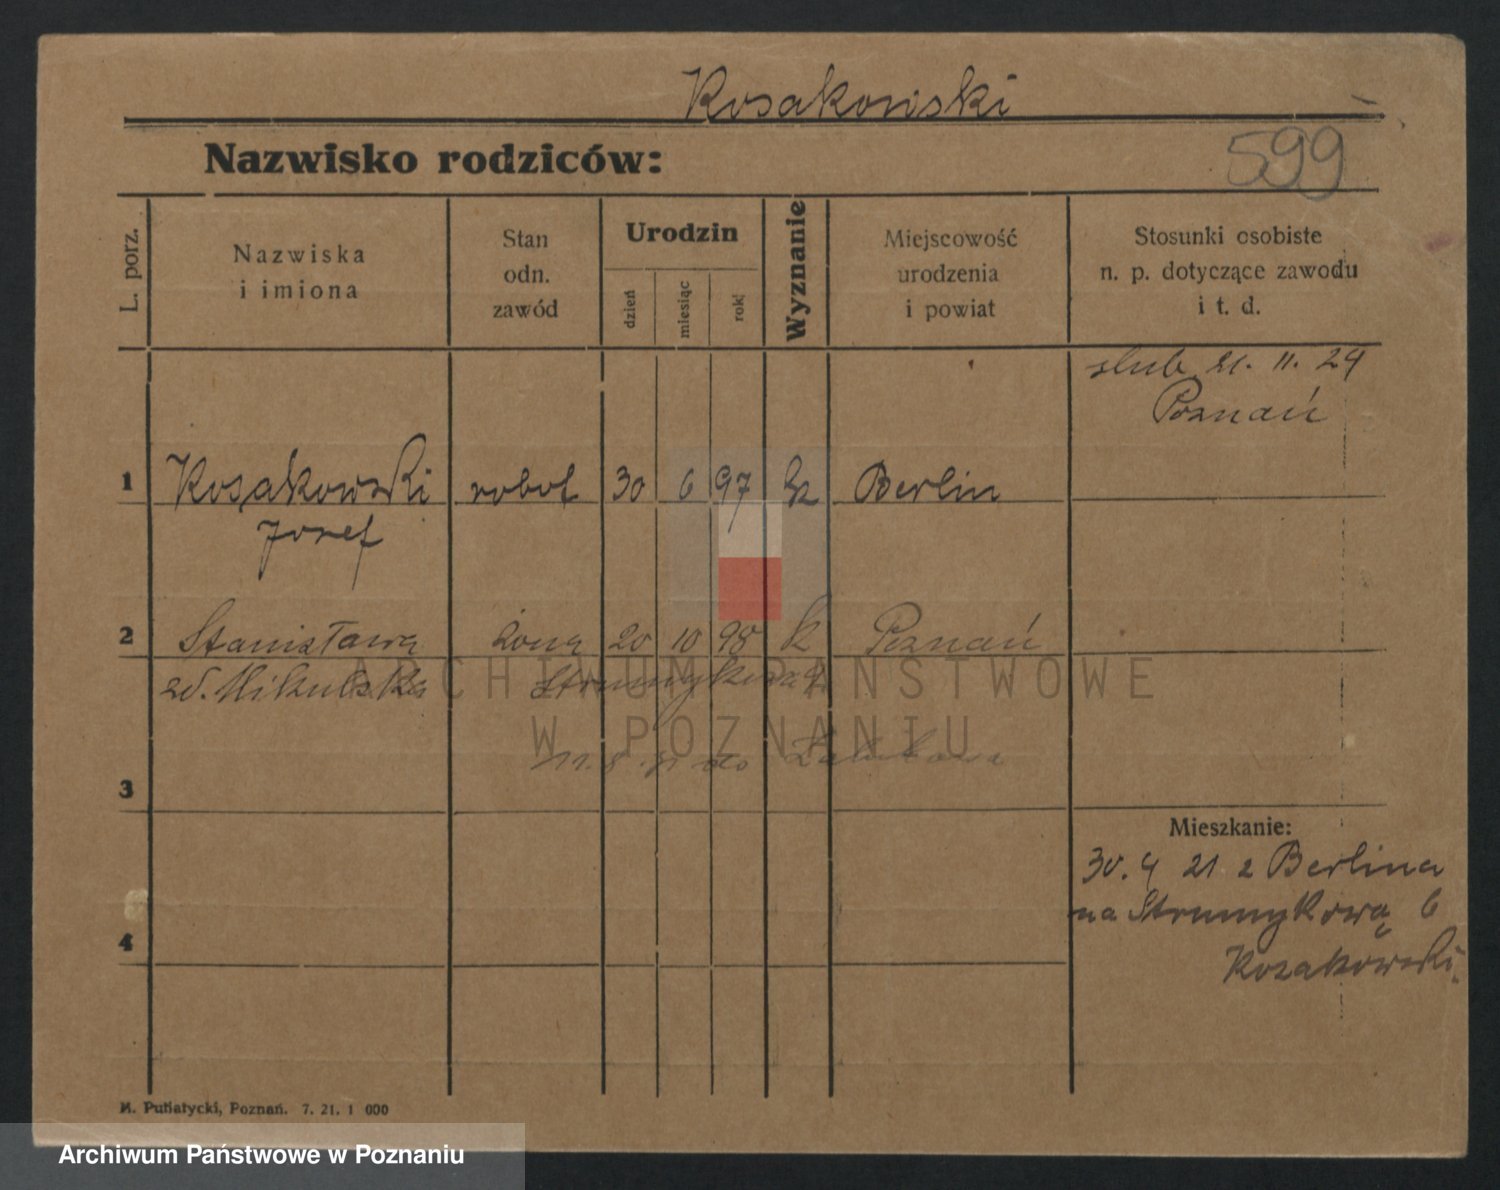 Kosakowski
Nazwisko rodziców:
599
L. porz.
Nazwiska
i imiona
Stan
odn.
zawód
Urodzin
dzień
miesiąc
rok
Wyznanie
Miejscowość
urodzenia
i powiat
Stosunki osobiste
n. p. dotyczące zawodu
i t. d.
slub 21. 11. 24
Poznań
1 Kosakowski robot 30 6 97 Berlin
Jozef
2 Stanisława żona 20 10 98 k Poznań
zd. Mikulska Strumykowa
ARCHIWUM PAŃSTWOWE
W POZNANIU
do
3
Mieszkanie:
30. 4 21 z Berlina
na Strumykową 6
Kosakowski
4
Putiatycki, Poznań. 7. 21. 1 000
Archiwum Państwowe w Poznaniu